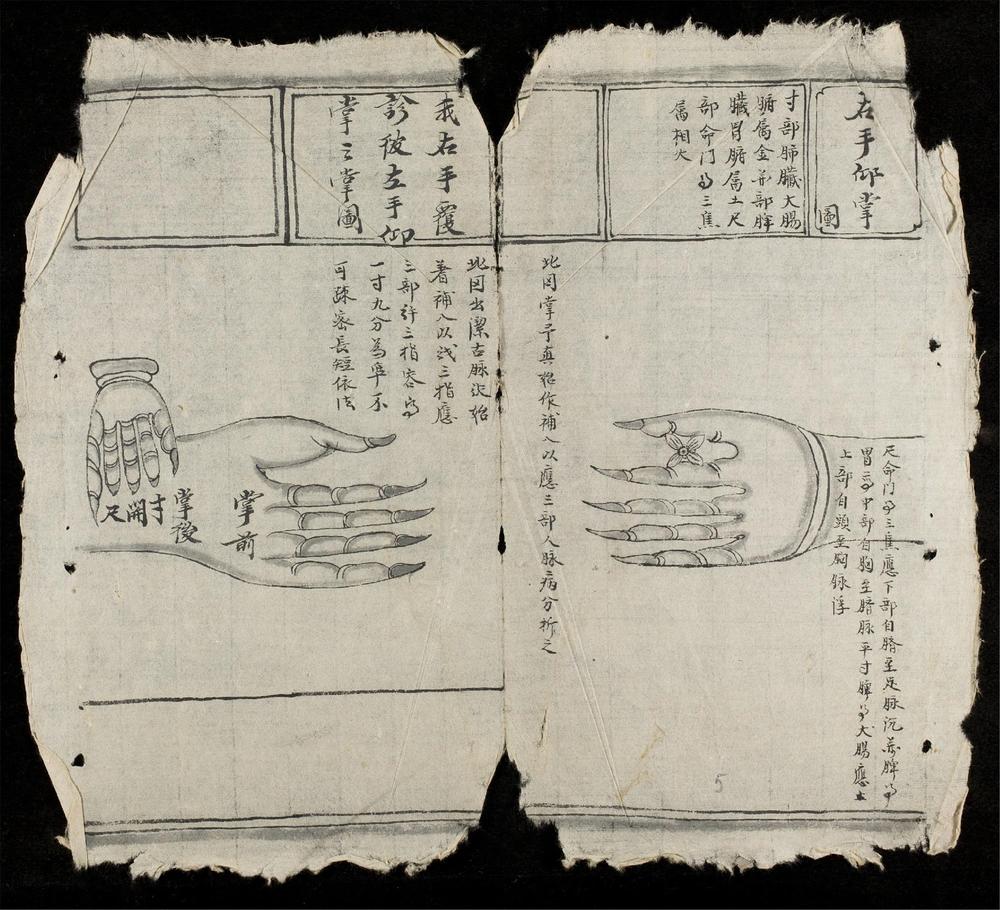 右手仰掌
圖
寸部肺臟大腸
腑属金部脾
臟胃腑属土尺
部命門為三焦
属相火
尺命門為三焦應下部自臍至足脉沉脾為
胃中部自胸至臍脉平寸為大腸應
上部自頭至胸脉浮
此図掌予真始作補入以應三部人脉病分折之
我右手覆
診彼左手仰
掌之掌圖
此図出潔古脉訣始
著補入以我三指應
三部許三指容為
一寸九分為準不
可疎密長短依法
掌前
掌後
寸
開
尺
5